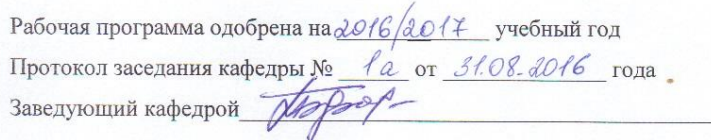 Рабочая программа одобрена на 2016/2017 учебный год
Протокол заседания кафедры № 1а от 31.08.2016 года
Заведующий кафедрой